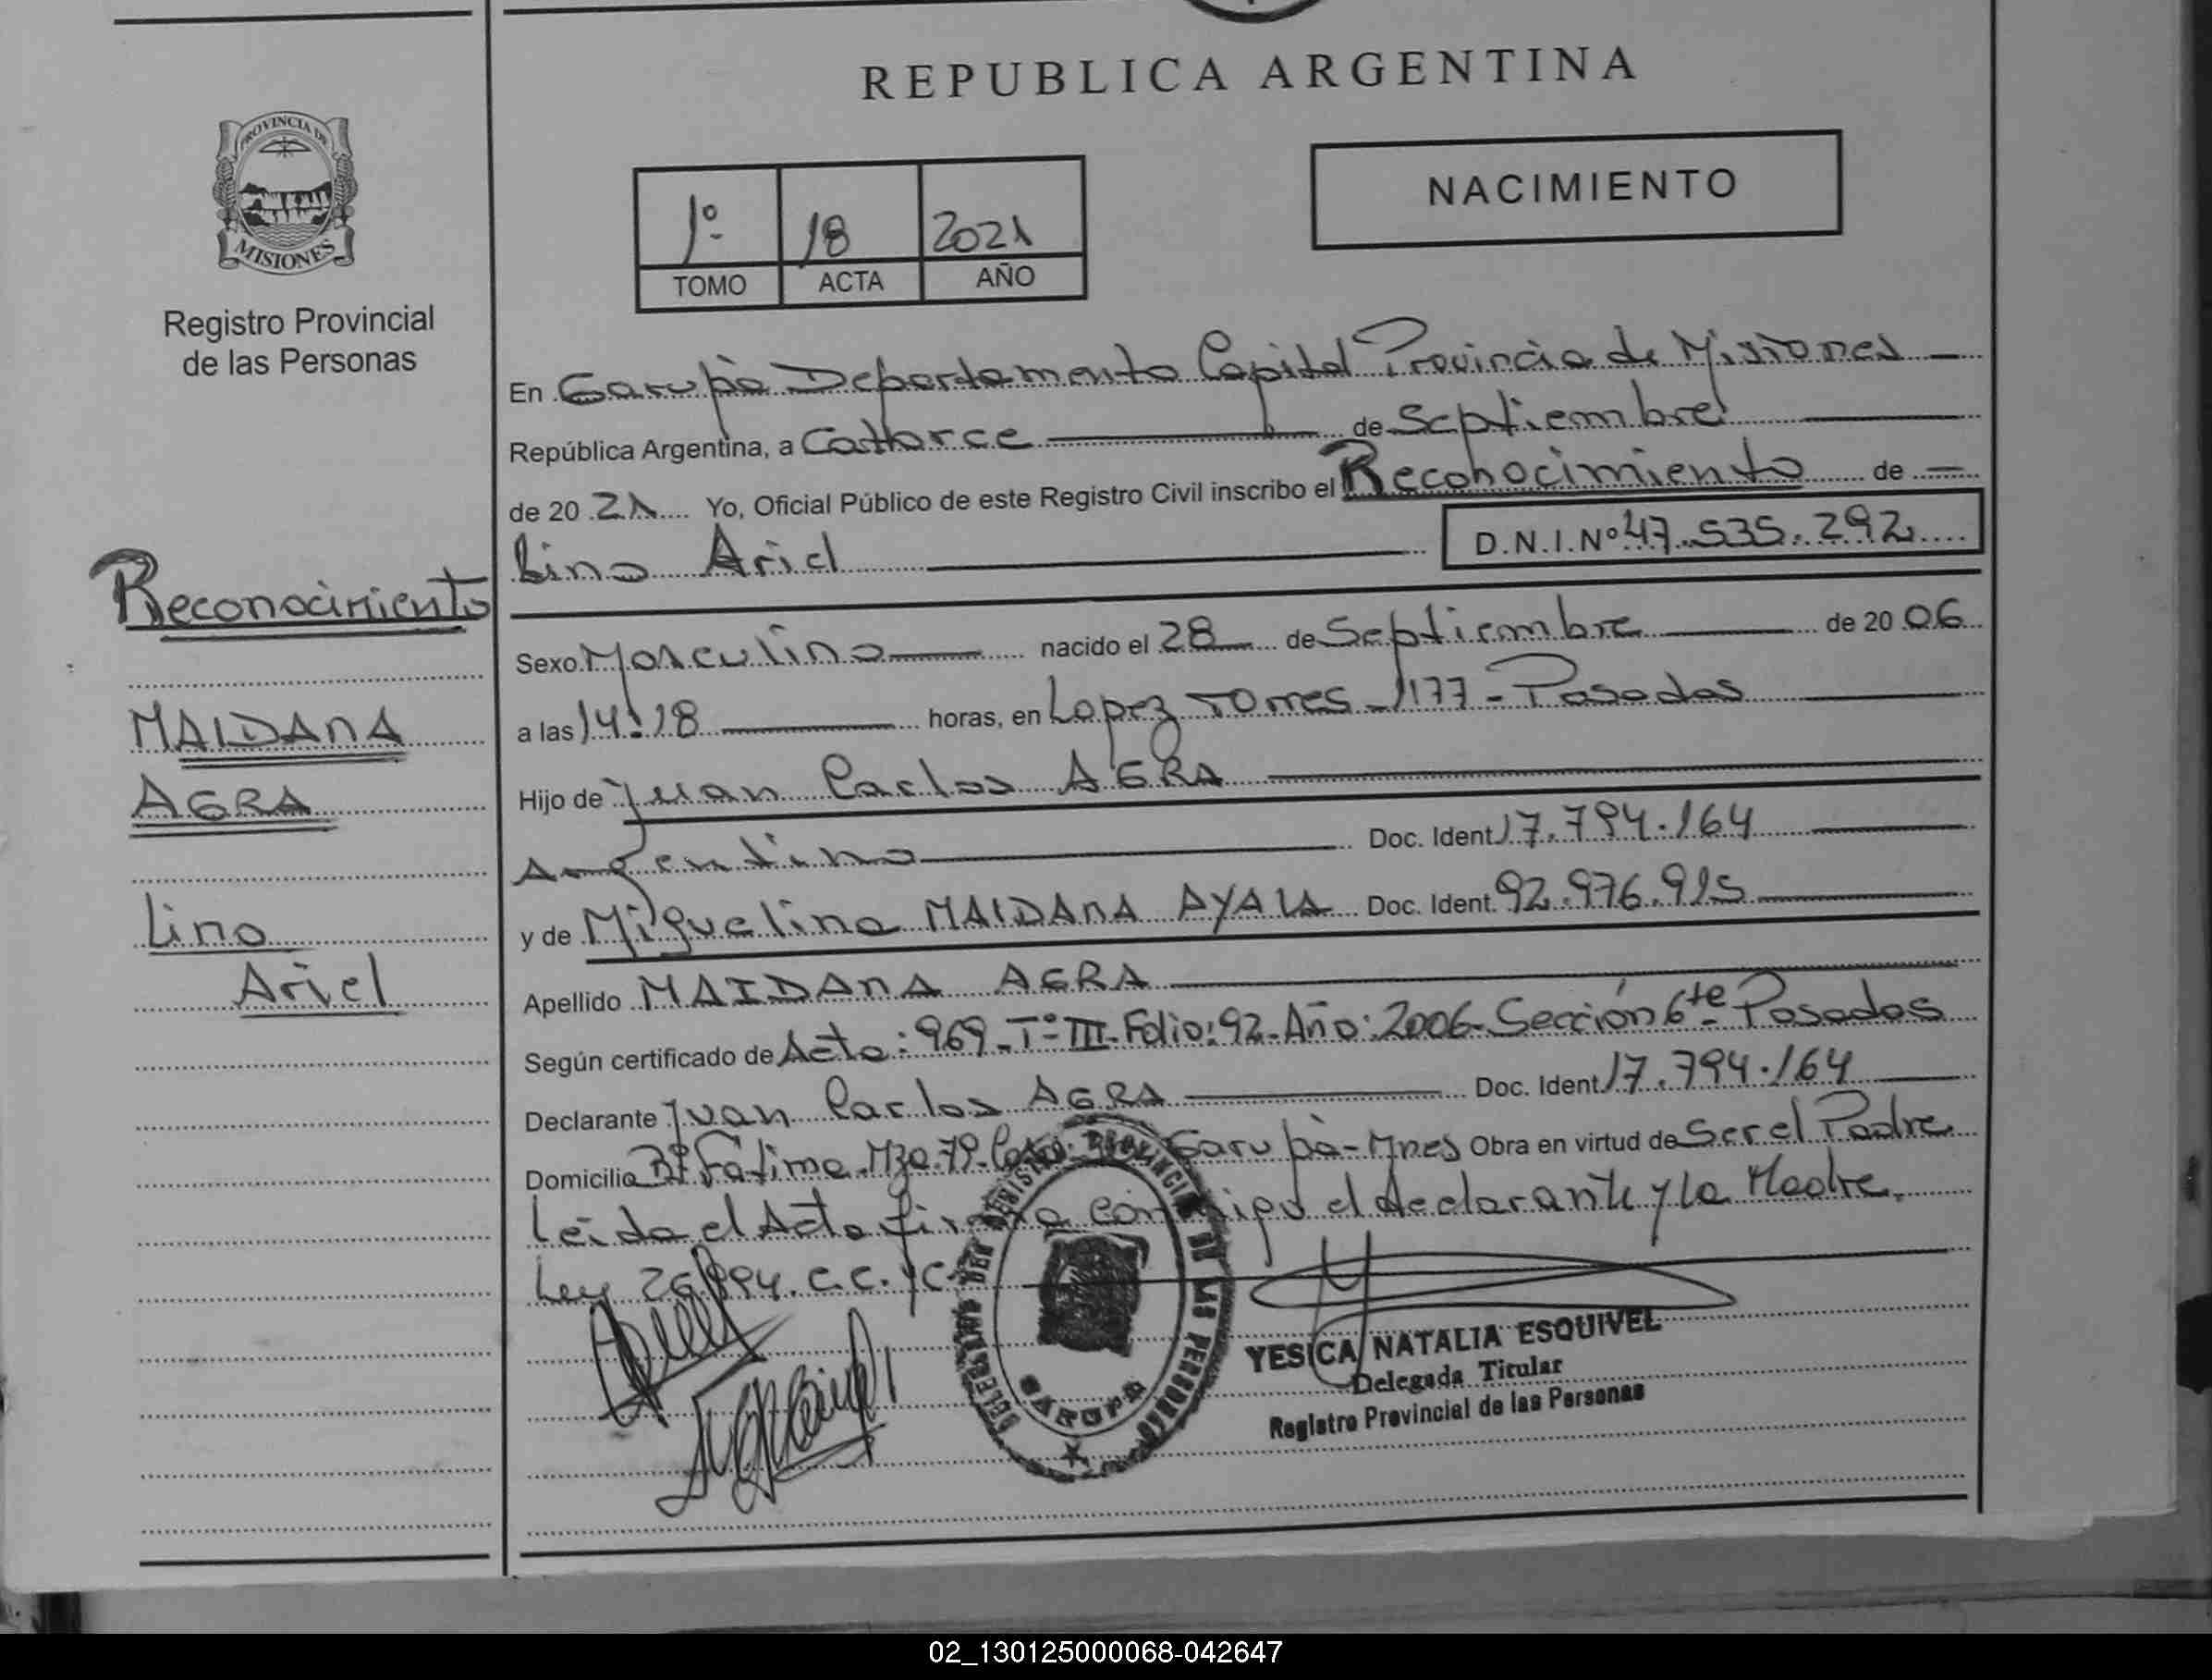 REPUBLICA ARGENTINA
PROVINCIA DE
MISIONES
Registro Provincial
de las Personas
NACIMIENTO
1º 18 2021
TOMO ACTA AÑO
En Garupà Departamento Capital Provincia de Misiones
República Argentina, a Catorce de Septiembre
de 20 21 Yo, Oficial Público de este Registro Civil inscribo el Reconocimiento de
Lino Ariel D.N.I.Nº 47.535.292
Reconocimiento
MAIDANA
AGRA
Lino
Ariel
Sexo Masculino nacido el 28 de Septiembre de 20 06
a las 14:18 horas, en Lopez Torres 1177 - Posadas
Hijo de Juan Carlos AGRA
Argentino Doc. Ident. 17.794.164
y de Miguelina MAIDANA AYALA Doc. Ident. 92.976.915
Apellido MAIDANA AGRA
Según certificado de Acta: 969 - Tº III - Folio: 92 - Año: 2006 - Sección 6te Posadas
Declarante Juan Carlos AGRA Doc. Ident. 17.794.164
Domicilio Bº Fátima Mza. 79 - Garupà - Mnes Obra en virtud de Ser el Padre
Leida el Acta firma conmigo el declarante y la Madre.
Ley 26.994. C.C. y C.
DELEGACION DEL REGISTRO PROVINCIAL DE LAS PERSONAS
GARUPA
YESICA NATALIA ESQUIVEL
Delegada Titular
Registro Provincial de las Personas
02_130125000068-042647